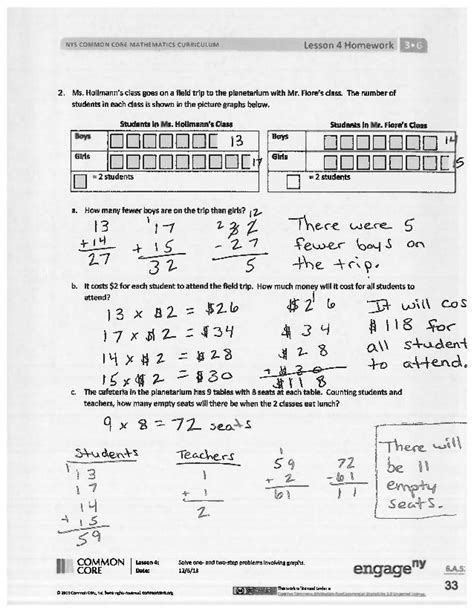 NYS COMMON CORE MATHEMATICS CURRICULUM
Lesson 4 Homework 3•6
2. Ms. Hollmann's class goes on a field trip to the planetarium with Mr. Fiore's class. The number of
students in each class is shown in the picture graphs below.
Students in Ms. Hollmann's Class
Boys 13
Girls 17
= 2 students
Students in Mr. Fiore's Class
Boys 14
Girls 15
= 2 students
a. How many fewer boys are on the trip than girls?
13
+14
27
1
17
+ 15
32
2 12
32
- 27
5
There were 5
fewer boys on
the trip.
b. It costs $2 for each student to attend the field trip. How much money will it cost for all students to
attend?
13 × $2 = $26
17 × $2 = $34
14 × $2 = $28
15 × $2 = $30
1
$26
$34
$28
+ $30
$118
It will cos
$118 for
all student
to attend.
c. The cafeteria in the planetarium has 9 tables with 8 seats at each table. Counting students and
teachers, how many empty seats will there be when the 2 classes eat lunch?
9 × 8 = 72 seats
Students
1
13
17
14
+ 15
59
Teachers
1
+ 1
2
1
59
+ 2
61
72
-61
11
There will
be 11
empty
seats.
COMMON
CORE
Lesson 4: Solve one- and two-step problems involving graphs.
Date: 12/6/13
engageny
6.A.5
33